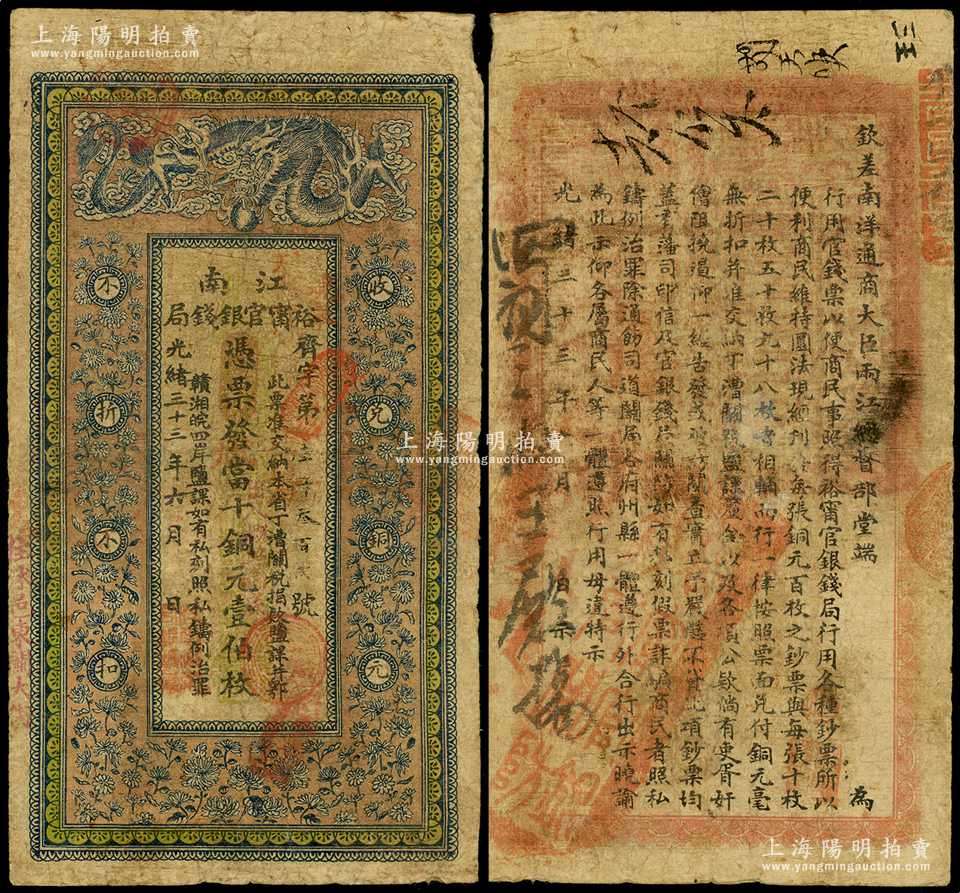 上海陽明拍賣
www.yangmingauction.com
江南
裕甯官銀錢局
齊字第壹千叁百貳號
此票准交納本省丁漕關稅捐欵鹽課並鄂
憑票發當十銅元壹伯枚
贛湘皖四岸鹽課如有私刻照私鑄例治罪
光緒三十三年六月日
收兌銅元
不折不扣
上海陽明拍賣
www.yangmingauction.com
欽差南洋通商大臣兩江總督部堂端
為
行用官錢票以便商民事照得裕甯官銀錢局行用各種鈔票所以
便利商民維持圜法現經刊每張銅元百枚之鈔票與每張十枚
二十枚五十枚九十八枚者相輔而行一律按照票面兌付銅元毫
無折扣并准交納丁漕關稅鹽課釐金以及各項公欵倘有吏胥奸
僧阻撓過抑一經告發或查實立予嚴懲不貸此項鈔票均
蓋有藩司印信及官銀錢局關防如有私刻假票詐騙商民者照私
鑄例治罪除通飭司道關局各府州縣一體遵行外合行出示曉諭
為此示仰各屬商民人等一體遵照行用毋違特示
光緒三十三年月日示
上海陽明拍賣
www.yangmingauction.com